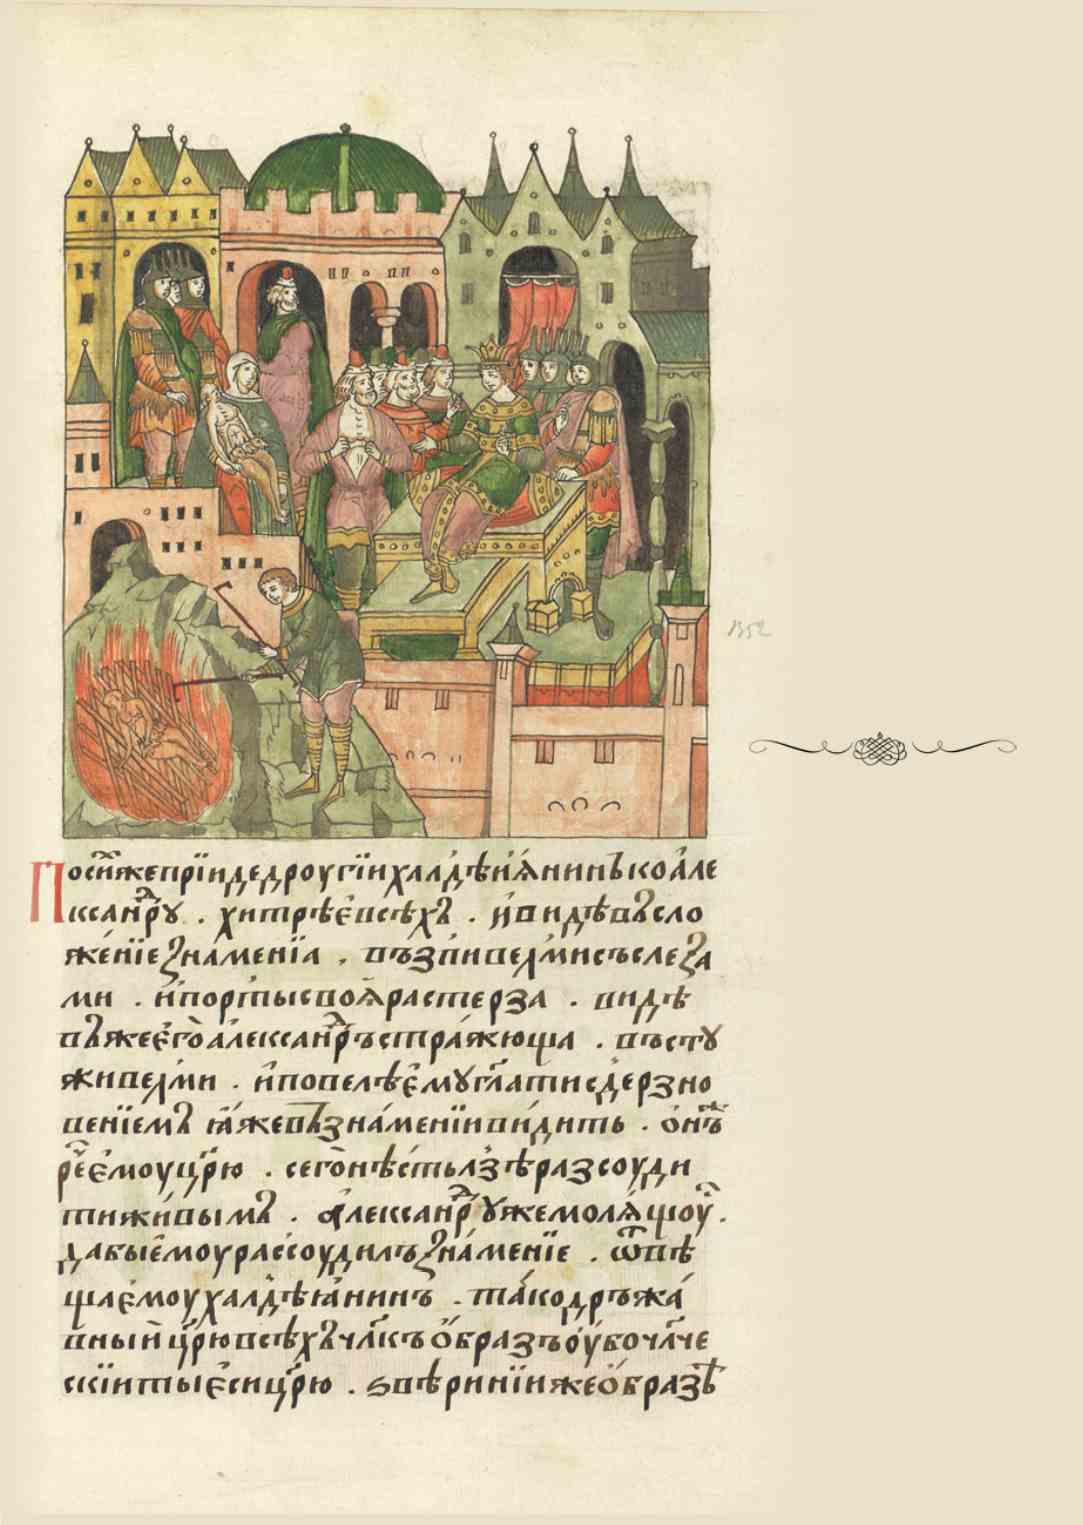 Посн҃жепрїидедроугїихалдѣиꙗнинъкоале
ксан҃дрꙋ . хитрѣевсѣхъ . ивидѣвъсло
женїезнаменїа . възпивелмисъслеза
ми . ипортысвоярастерза . видѣ
въжеегоалександръстражюща . въстꙋ
живелми . иповелѣемꙋгл҃атисдерзно
венїемъ ꙗжевъзнаменїивидить . онъ
рч҃еемоуцр҃ю . сегонѣстьлзѣразсоуди
тиживымъ . александрꙋжемолящоу .
дабыемоурассоудилъзнаменїе . ѿвѣ
щаемоухалдѣꙗнинъ . такодръжа
вныйцр҃ювсѣхъчл҃къобразъоубочл҃че
скїитыесицр҃ю . ѕвѣринїижеобразъ
1352